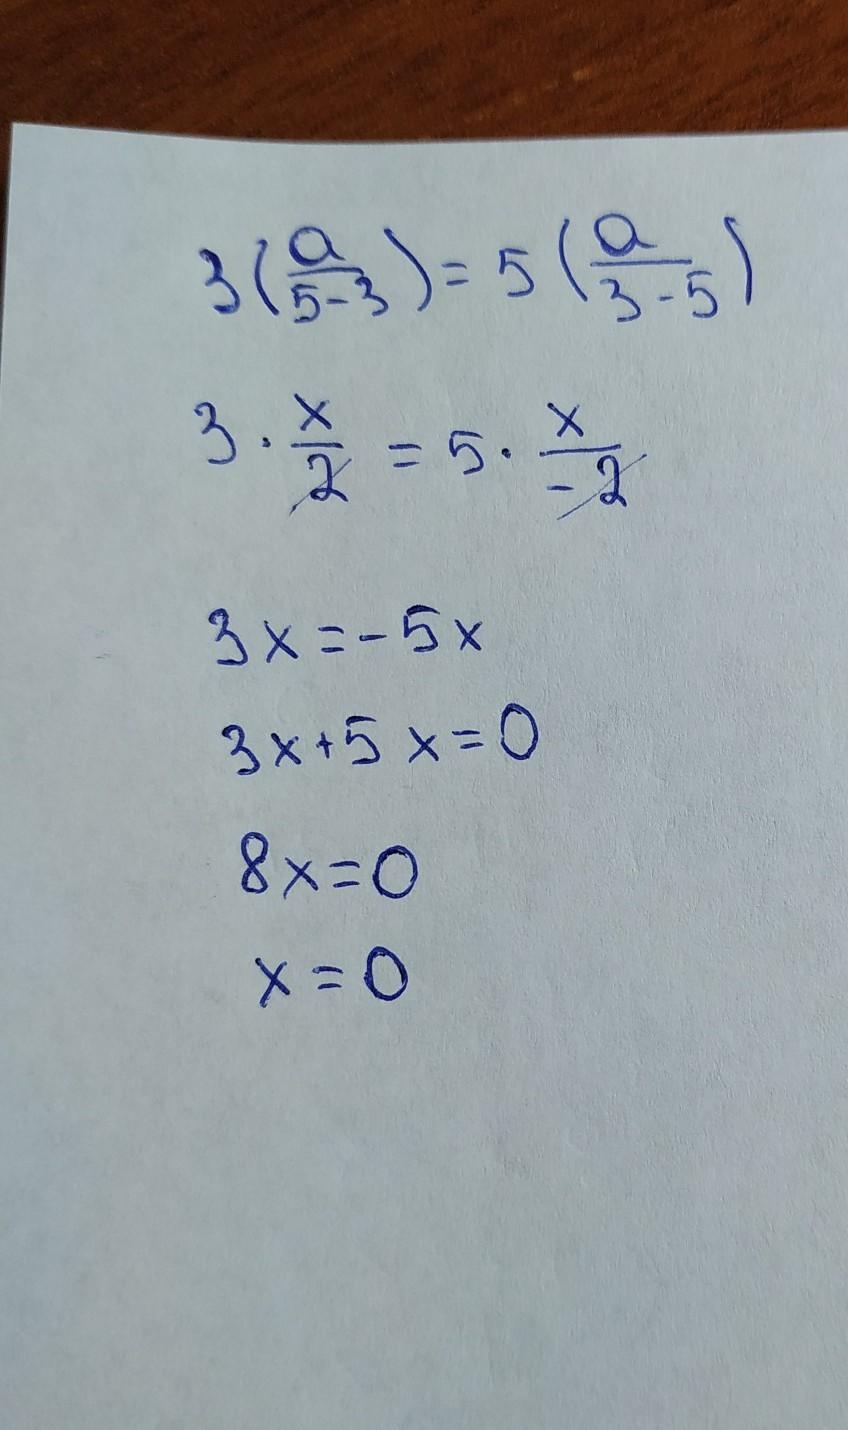 3(a/5-3) = 5(a/3-5)
3 · x/2 = 5 · x/-2
3x=-5x
3x+5x=0
8x=0
x=0